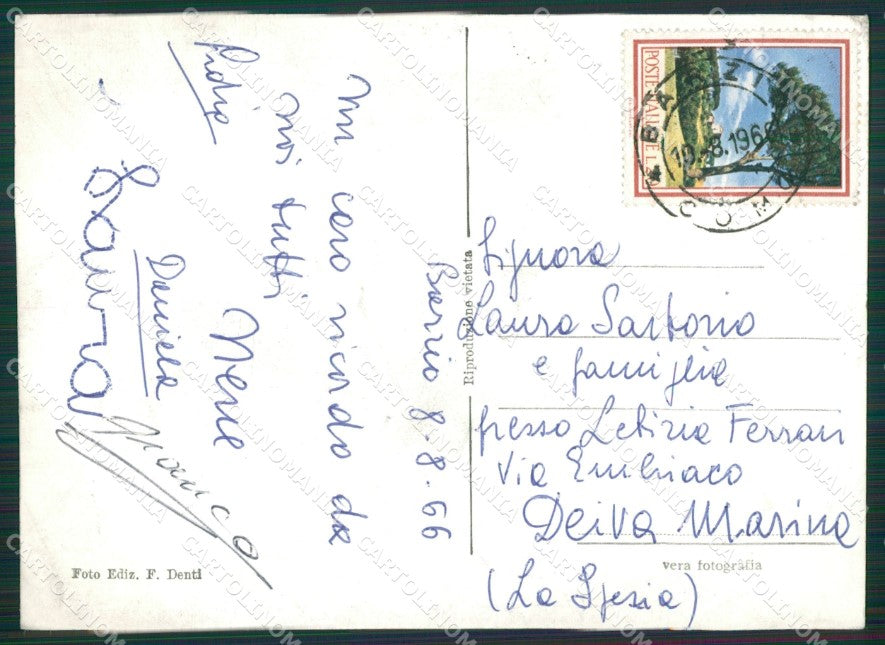 Barzio 8.8.66
Un caro ricordo da
noi tutti
Nene
Daniela
Laura
Franco
Signora
Laura Sartorio
e famiglia
presso Letizia Ferrari
Via
Deiva Marina
(La Spezia)
POSTE ITALIANE L.
BARZIO
10.-8.1966
COMO
Riproduzione vietata
Foto Ediz. F. Denti
vera fotografia
CARTOLINOMANIA